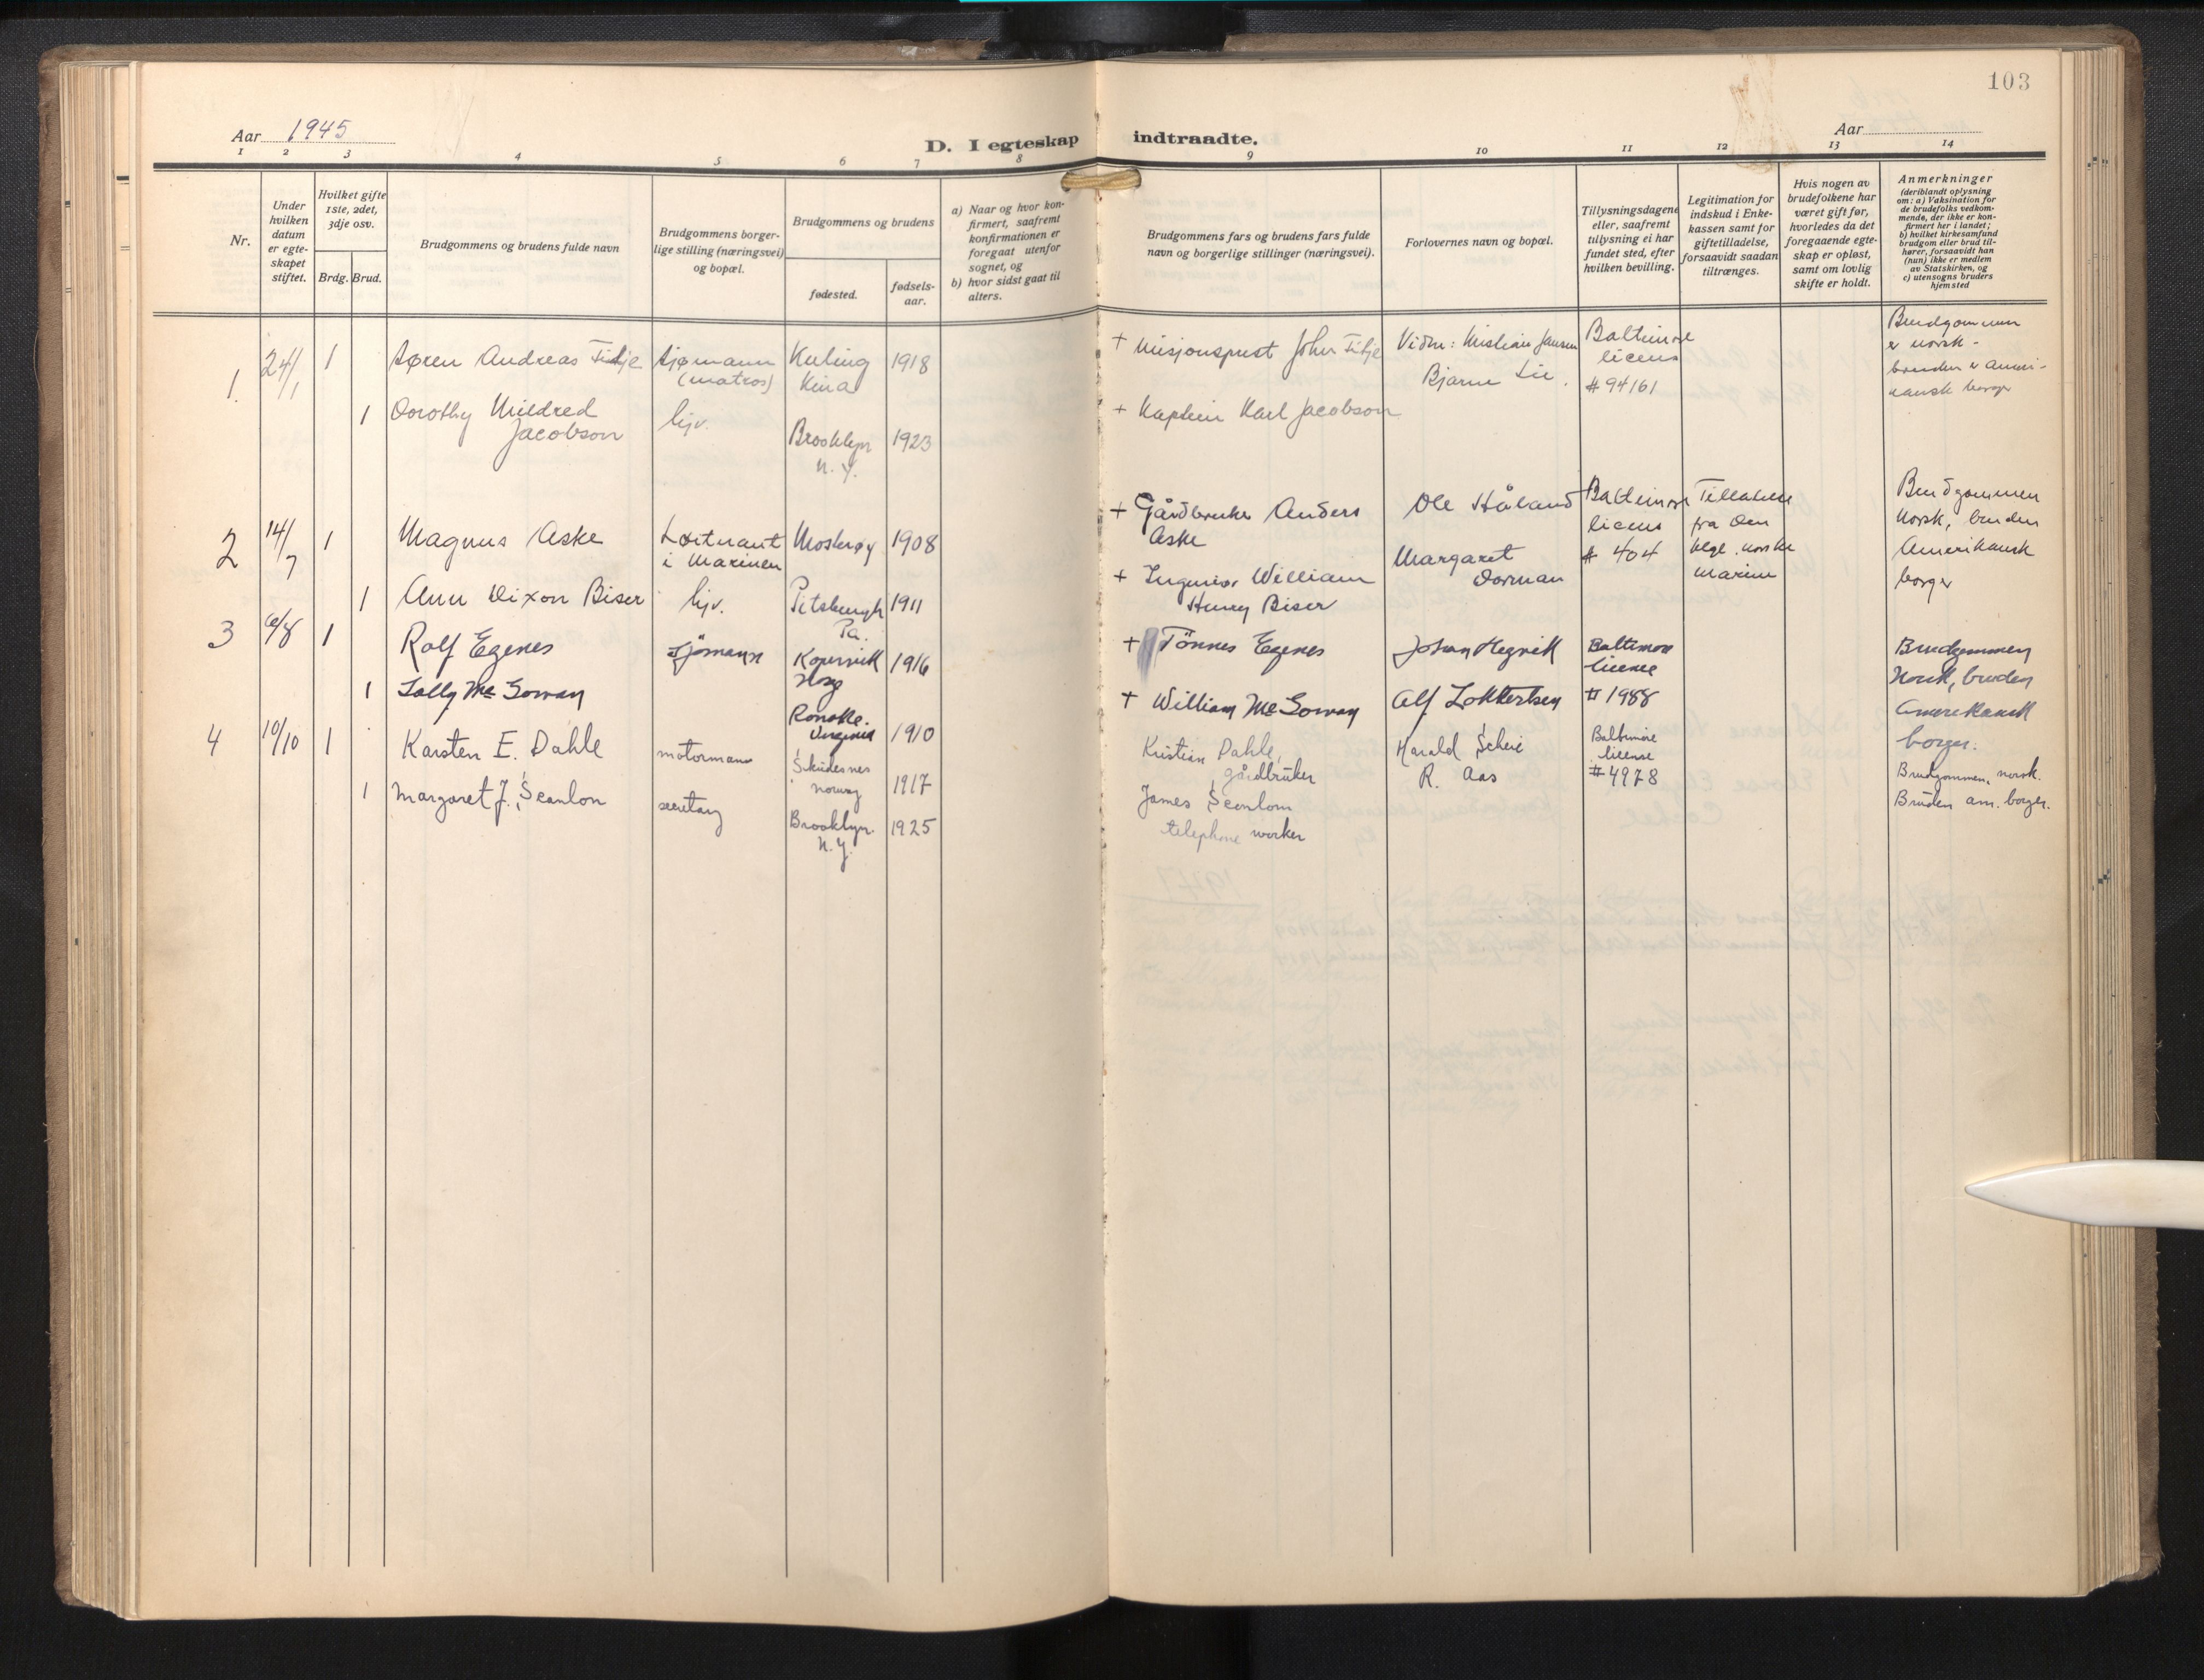 103
Aar 1945
D. I egteskap indtraadte.
Aar
1 2 3 4 5 6 7 8 9 10 11 12 13 14
Nr.
Under
hvilken
datum
er egte-
skapet
stiftet.
Hvilket gifte
1ste, 2det,
3dje osv.
Brdg. Brud.
Brudgommens og brudens fulde navn
Brudgommens borger-
lige stilling (næringsvei)
og bopæl.
Brudgommens og brudens
fødested.
fødsels-
aar.
a) Naar og hvor kon-
firmert, saafremt
konfirmationen er
foregaat utenfor
sognet, og
b) hvor sidst gaat til
alters.
Brudgommens fars og brudens fars fulde
navn og borgerlige stillinger (næringsvei).
Forlovernes navn og bopæl.
Tillysningsdagene
eller, saafremt
tillysning ei har
fundet sted, efter
hvilken bevilling.
Legitimation for
indskud i Enke-
kassen samt for
giftetilladelse,
forsaavidt saadan
tiltrænges.
Hvis nogen av
brudefolkene har
været gift før,
hvorledes da det
foregaaende egte-
skap er opløst,
samt om lovlig
skifte er holdt.
Anmerkninger
(deriblandt oplysning
om: a) Vaksination for
de brudefolks vedkom-
mende, der ikke er kon-
firmert her i landet;
b) hvilket kirkesamfund
brudgom eller brud til-
hører, forsaavidt han
(hun) ikke er medlem
av Statskirken, og
c) utensogns bruders
hjemsted
1.
24/1
1
Søren Andreas Tidje
sjømann
(matros)
Kuling
Kina
1918
+ Misjonsprest John
Vidne: Kristian Jansen
Bjarne Lie.
Baltimore
licens
# 94161
Brudgommen
er norsk -
bruden er ameri-
kansk borger
1
Dorothy Mildred
Jacobson
hjv.
Brooklyn
N. Y.
1923
+ Kaptein Karl Jacobson
2
14/7
1
Magnus Aske
Løitnant
i Marinen
Mosterøy
1908
+ Gårdbruker Anders
Aske
Ole Håland
Margaret
Dorman
Baltimore
licens
# 404
Tillatelse
fra den
kgl. norske
marine
Brudgommen
Norsk, bruden
Amerikansk
borger
1
Ann Dixon Biser
hjv.
Pitsburgh
Pa.
1911
+ Ingeniør William
Henry Biser
3
6/8
1
Rolf Egenes
sjömann
Kopervik
Norg
1916
+ Tönnes Egenes
Johan Hegvik
Baltimore
license
# 1988
Brudgommen
Norsk, bruden
Amerikansk
borger.
1
Sally Mc Gowan
Ronoke.
Virginia
1910
+ William Mc Gowan
Alf Lokkertsen
4
10/10
1
Karsten E. Dahle
motormann
Skudesnes
Norway
1917
Kristian Dahle,
gårdbruker
Harald Scheie
R. Aas
Baltimore
license
# 4978
Brudgommen, norsk.
Bruden am. borger.
1
Margaret J. Scanlon
secretary
Brooklyn.
N.Y.
1925
James Scanlon
telephone worker